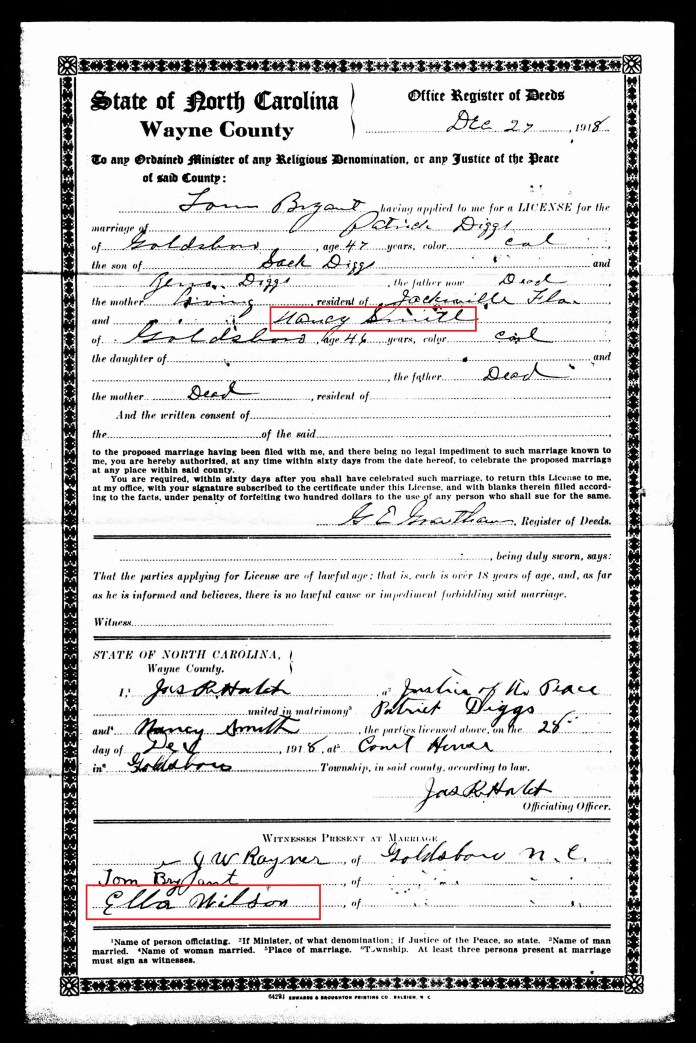 State of North Carolina
Wayne County
Office Register of Deeds
Dec 27, 1918
To any Ordained Minister of any Religious Denomination, or any Justice of the Peace
of said County:
Tom Bryant having applied to me for a LICENSE for the
marriage of Patrick Diggs
of Goldsboro, age 47 years, color col
the son of Sack Diggs and
Diggs, the father now Dead
the mother living, resident of Jacksville Fla
and Nancy Smith
of Goldsboro, age 46 years, color col
the daughter of and
, the father Dead
the mother Dead, resident of
And the written consent of
the of the said
to the proposed marriage having been filed with me, and there being no legal impediment to such marriage known to
me, you are hereby authorized, at any time within sixty days from the date hereof, to celebrate the proposed marriage
at any place within said county.
You are required, within sixty days after you shall have celebrated such marriage, to return this License to me,
at my office, with your signature subscribed to the certificate under this License, and with blanks therein filled accord-
ing to the facts, under penalty of forfeiting two hundred dollars to the use of any person who shall sue for the same.
G E Grantham, Register of Deeds.
, being duly sworn, says:
That the parties applying for License are of lawful age; that is, each is over 18 years of age, and, as far
as he is informed and believes, there is no lawful cause or impediment forbidding said marriage.
Witness
STATE OF NORTH CAROLINA,
Wayne County.
I, Jas R. Hatch a² Justice of the Peace
united in matrimony³ Patrick Diggs
and⁴ Nancy Smith, the parties licensed above, on the 28
day of Dec, 1918, at⁵ Court House
in⁶ Goldsboro Township, in said county, according to law.
Jas R. Hatch
Officiating Officer.
WITNESSES PRESENT AT MARRIAGE
J W Rayner, of Goldsboro N. C.
Tom Bryant, of " "
Ella Wilson, of " "
¹Name of person officiating. ²If Minister, of what denomination; if Justice of the Peace, so state. ³Name of man
married. ⁴Name of woman married. ⁵Place of marriage. ⁶Township. At least three persons present at marriage
must sign as witnesses.
64293 EDWARDS & BROUGHTON PRINTING CO., RALEIGH, N C